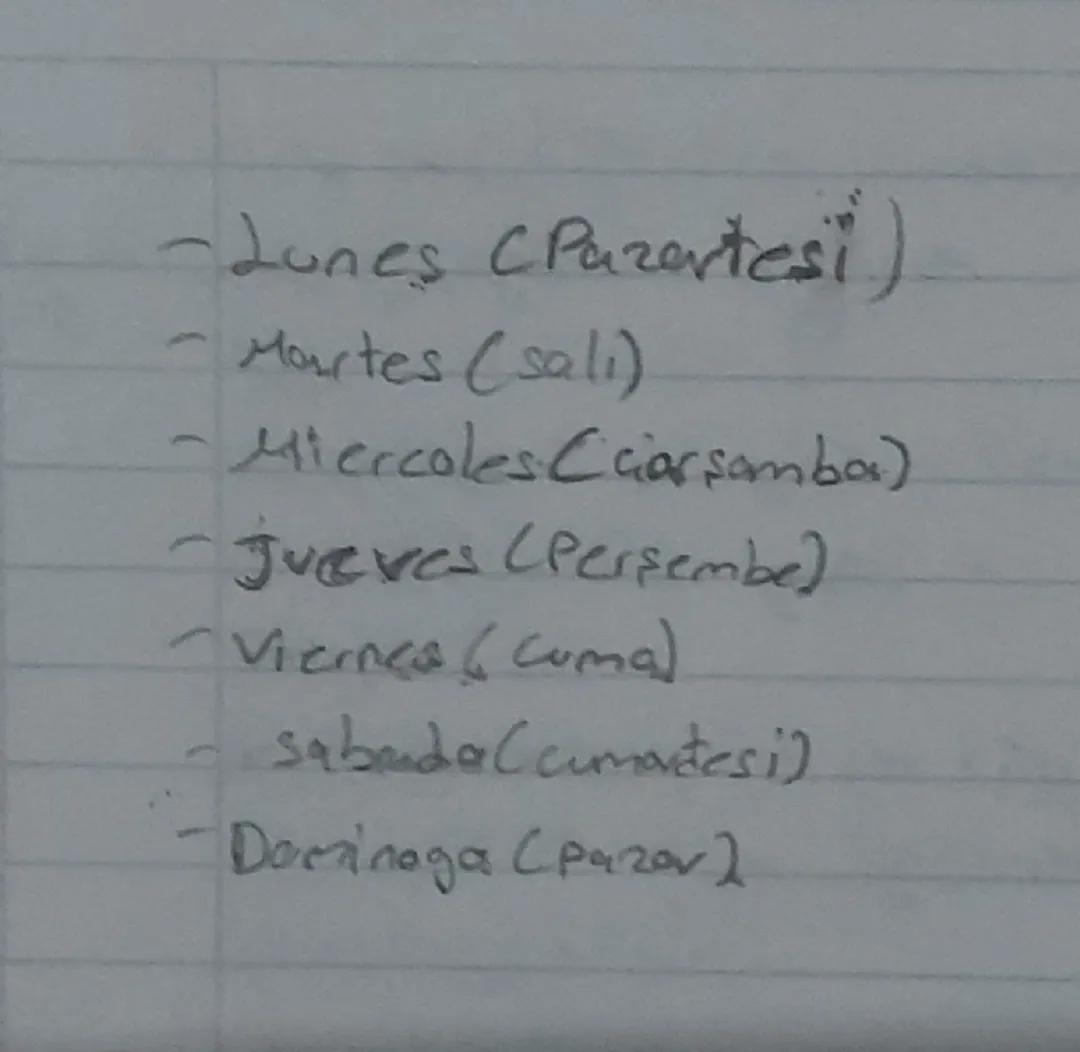 - Lunes (Pazartesi)
- Martes (salı)
- Miercoles (çarşamba)
- Jueves (Perşembe)
- Viernes (Cuma)
- sabado (cumartesi)
- Dominaga (pazar)